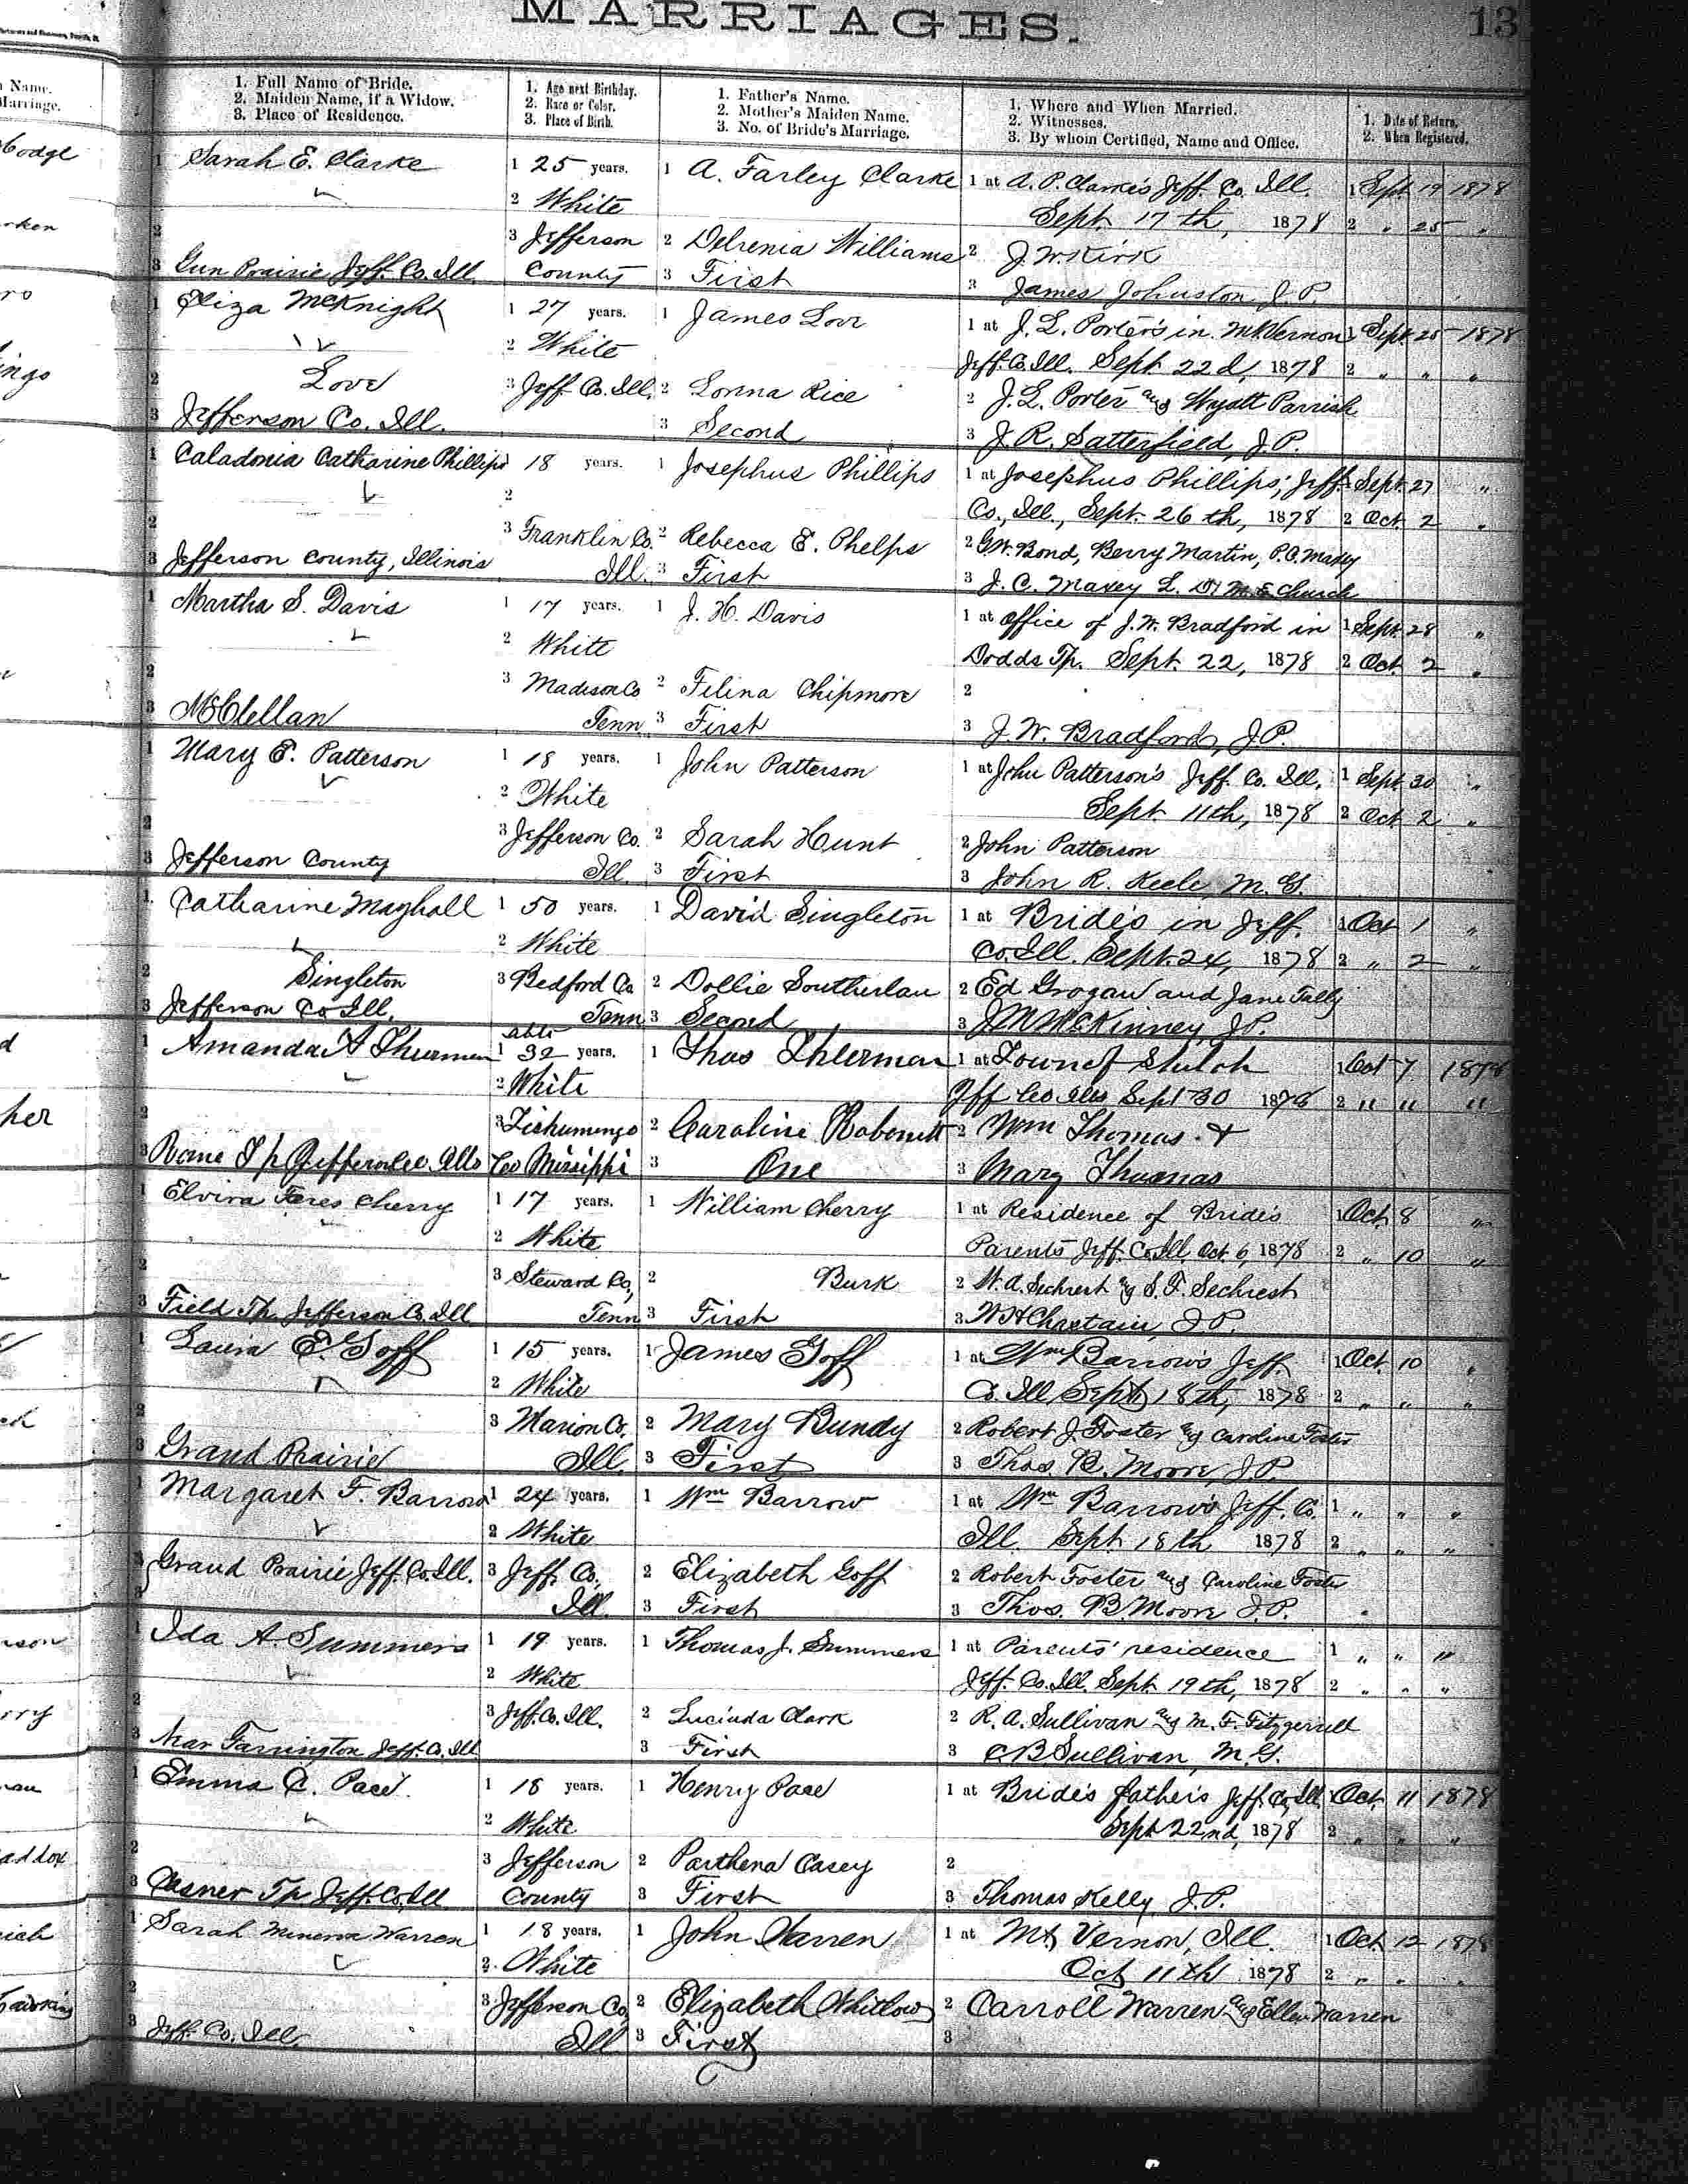 MARRIAGES.
13
Name.
Marriage.
1. Full Name of Bride.
2. Maiden Name, if a Widow.
3. Place of Residence.
1. Age next Birthday.
2. Race or Color.
3. Place of Birth.
1. Father's Name.
2. Mother's Maiden Name.
3. No. of Bride's Marriage.
1. Where and When Married.
2. Witnesses.
3. By whom Certified, Name and Office.
1. Date of Return.
2. When Registered.
1 Sarah E. Clarke 1 25 years. 1 A. Farley Clarke 1 at A. P. Clarke's Jeff. Co. Ill. 1 Sept. 19 1878
2 White Sept. 17th, 1878 2 " 25 "
2 3 Jefferson 2 Delrenia Williams 2 J. W. Kirk
3 Gun Prairie Jeff. Co. Ill. County 3 First 3 James Johnston J.P.
1 Eliza McKnight 1 27 years. 1 James Love 1 at J. L. Porter's in Mt. Vernon 1 Sept. 25 1878
2 White Jeff. Co. Ill. Sept 22d, 1878 2 " " "
2 Love 3 Jeff. Co. Ill. 2 Lorina Rice 2 J. L. Porter and Wyatt Parrish
3 Jefferson Co. Ill. 3 Second 3 J. R. Satterfield, J.P.
1 Caladonia Catharine Phillips 18 years. 1 Josephus Phillips 1 at Josephus Phillips; Jeff. 1 Sept. 27 "
2 Co., Ill., Sept. 26th, 1878 2 Oct. 2 "
2 3 Franklin Co. 2 Rebecca E. Phelps 2 G. W. Bond, Berry Martin, P. C. Maxey
3 Jefferson County, Illinois Ill. 3 First 3 J. C. Maxey L. D. M. E. Church
1 Martha S. Davis 1 17 years. 1 J. H. Davis 1 at Office of J. W. Bradford in 1 Sept. 28 "
2 White Dodds Tp. Sept. 22, 1878 2 Oct. 2 "
2 3 Madison Co 2 Filina Chipmore 2
3 McClellan Tenn 3 First 3 J. W. Bradford, J.P.
1 Mary E. Patterson 1 18 years. 1 John Patterson 1 at John Patterson's Jeff. Co. Ill. 1 Sept. 30 "
2 White Sept 11th, 1878 2 Oct 2 "
2 3 Jefferson Co. 2 Sarah Hunt 2 John Patterson
3 Jefferson County Ill. 3 First 3 John R. Keele, M.G.
1 Catharine Mayhall 1 50 years. 1 David Singleton 1 at Bride's in Jeff. 1 Oct 1 "
2 White Co. Ill. Sept. 24, 1878 2 " 2 "
2 Singleton 3 Bedford Co 2 Dollie Southerlan 2 Ed Grogan and Jane Tally
3 Jefferson Co Ill. Tenn 3 Second 3 J M McKinney, J.P.
1 Amanda A Thurman abt 1 32 years. 1 Thos Thurman 1 at Town of Shiloh 1 Oct 7 1878
2 White Jeff Co Ills Sept 30 1878 2 " " "
2 3 Tishumingo 2 Caroline 2 Wm Thomas &
3 Rome Tp Jefferson Co Ills Co Missippi 3 One 3 Mary Thomas
1 Elvira Feres Cherry 1 17 years. 1 William Cherry 1 at Residence of Bride's 1 Oct. 8 "
2 White Parents Jeff. Co. Ill. Oct. 6, 1878 2 " 10 "
2 3 Steward Co., 2 Burk 2 W. A. Sechrest and S. F. Sechrest
3 Field Tp. Jefferson Co. Ill Tenn 3 First 3 W H Chastain, J.P.
1 Laura E. Goff 1 15 years. 1 James Goff 1 at Wm Barrow's Jeff. 1 Oct. 10 "
2 White Co. Ill Sept 18th, 1878 2 " " "
2 3 Marion Co. 2 Mary Bundy 2 Robert J. Foster and Caroline Foster
3 Grand Prairie Ill. 3 First 3 Thos. B. Moore J.P.
1 Margaret F. Barrow 1 24 years. 1 Wm Barrow 1 at Wm Barrow's Jeff. Co. 1 " " "
2 White Ill Sept 18th 1878 2 " " "
2 Grand Prairie Jeff. Co. Ill. 3 Jeff. Co. 2 Elizabeth Goff 2 Robert Foster and Caroline Foster
3 Ill 3 First 3 Thos. B. Moore J.P.
1 Ida A. Summers 1 19 years. 1 Thomas J. Summers 1 at Parents' residence 1 " " "
2 White Jeff. Co. Ill. Sept 19th, 1878 2 " " "
2 3 Jeff. Co. Ill. 2 Lucinda Clark 2 R. A. Sullivan and M. F. Fitzgerrell
3 Near Farrington Jeff. Co. Ill 3 First 3 C B Sullivan, M.G.
1 Emma C. Pace. 1 18 years. 1 Henry Pace 1 at Bride's father's Jeff. Co. Ill 1 Oct. 11 1878
2 White Sept 22nd, 1878 2 " " "
2 3 Jefferson 2 Parthena Casey 2
3 Casner Tp. Jeff. Co. Ill County 3 First 3 Thomas Kelly J.P.
1 Sarah Minerva Warren 1 18 years. 1 John Warren 1 at Mt Vernon, Ill. 1 Oct. 12 1878
2 White Oct 11th 1878 2 " " "
2 3 Jefferson Co, 2 Elizabeth Whitlow 2 Carroll Warren and Ellen Warren
3 Jeff. Co. Ill. Ill 3 First 3